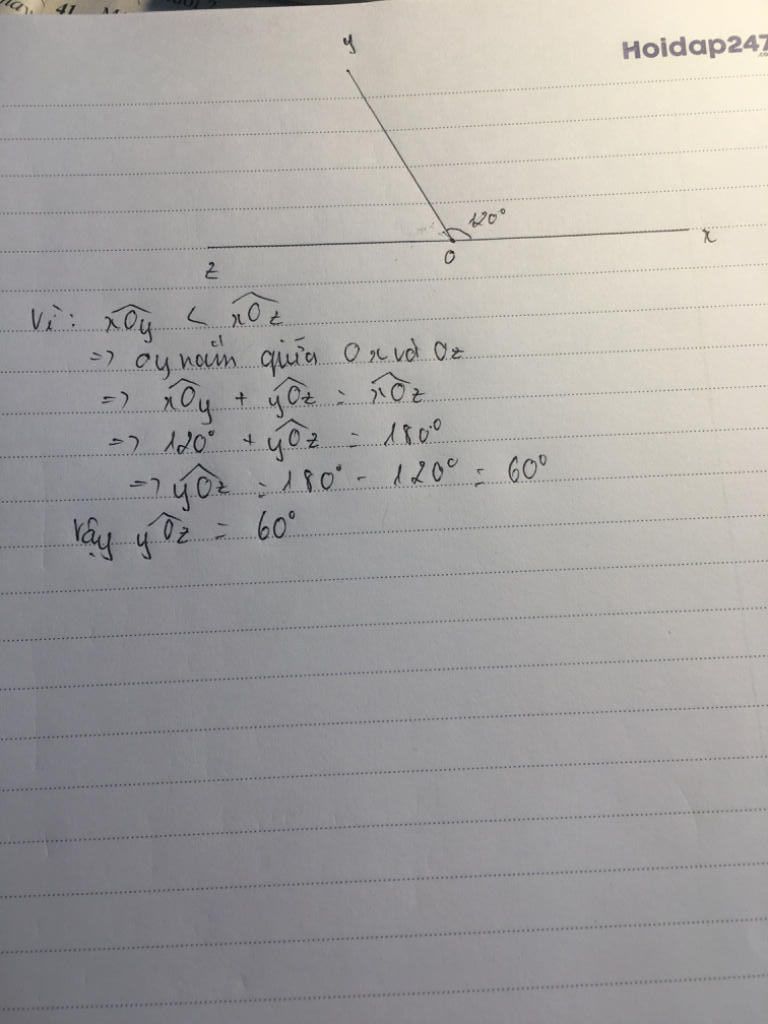 41
Hoidap247
y
120°
x
O
z
Vì: xOy < xOz
=> Oy nằm giữa Ox và Oz
=> xOy + yOz = xOz
=> 120° + yOz = 180°
=> yOz = 180° - 120° = 60°
Vậy yOz = 60°